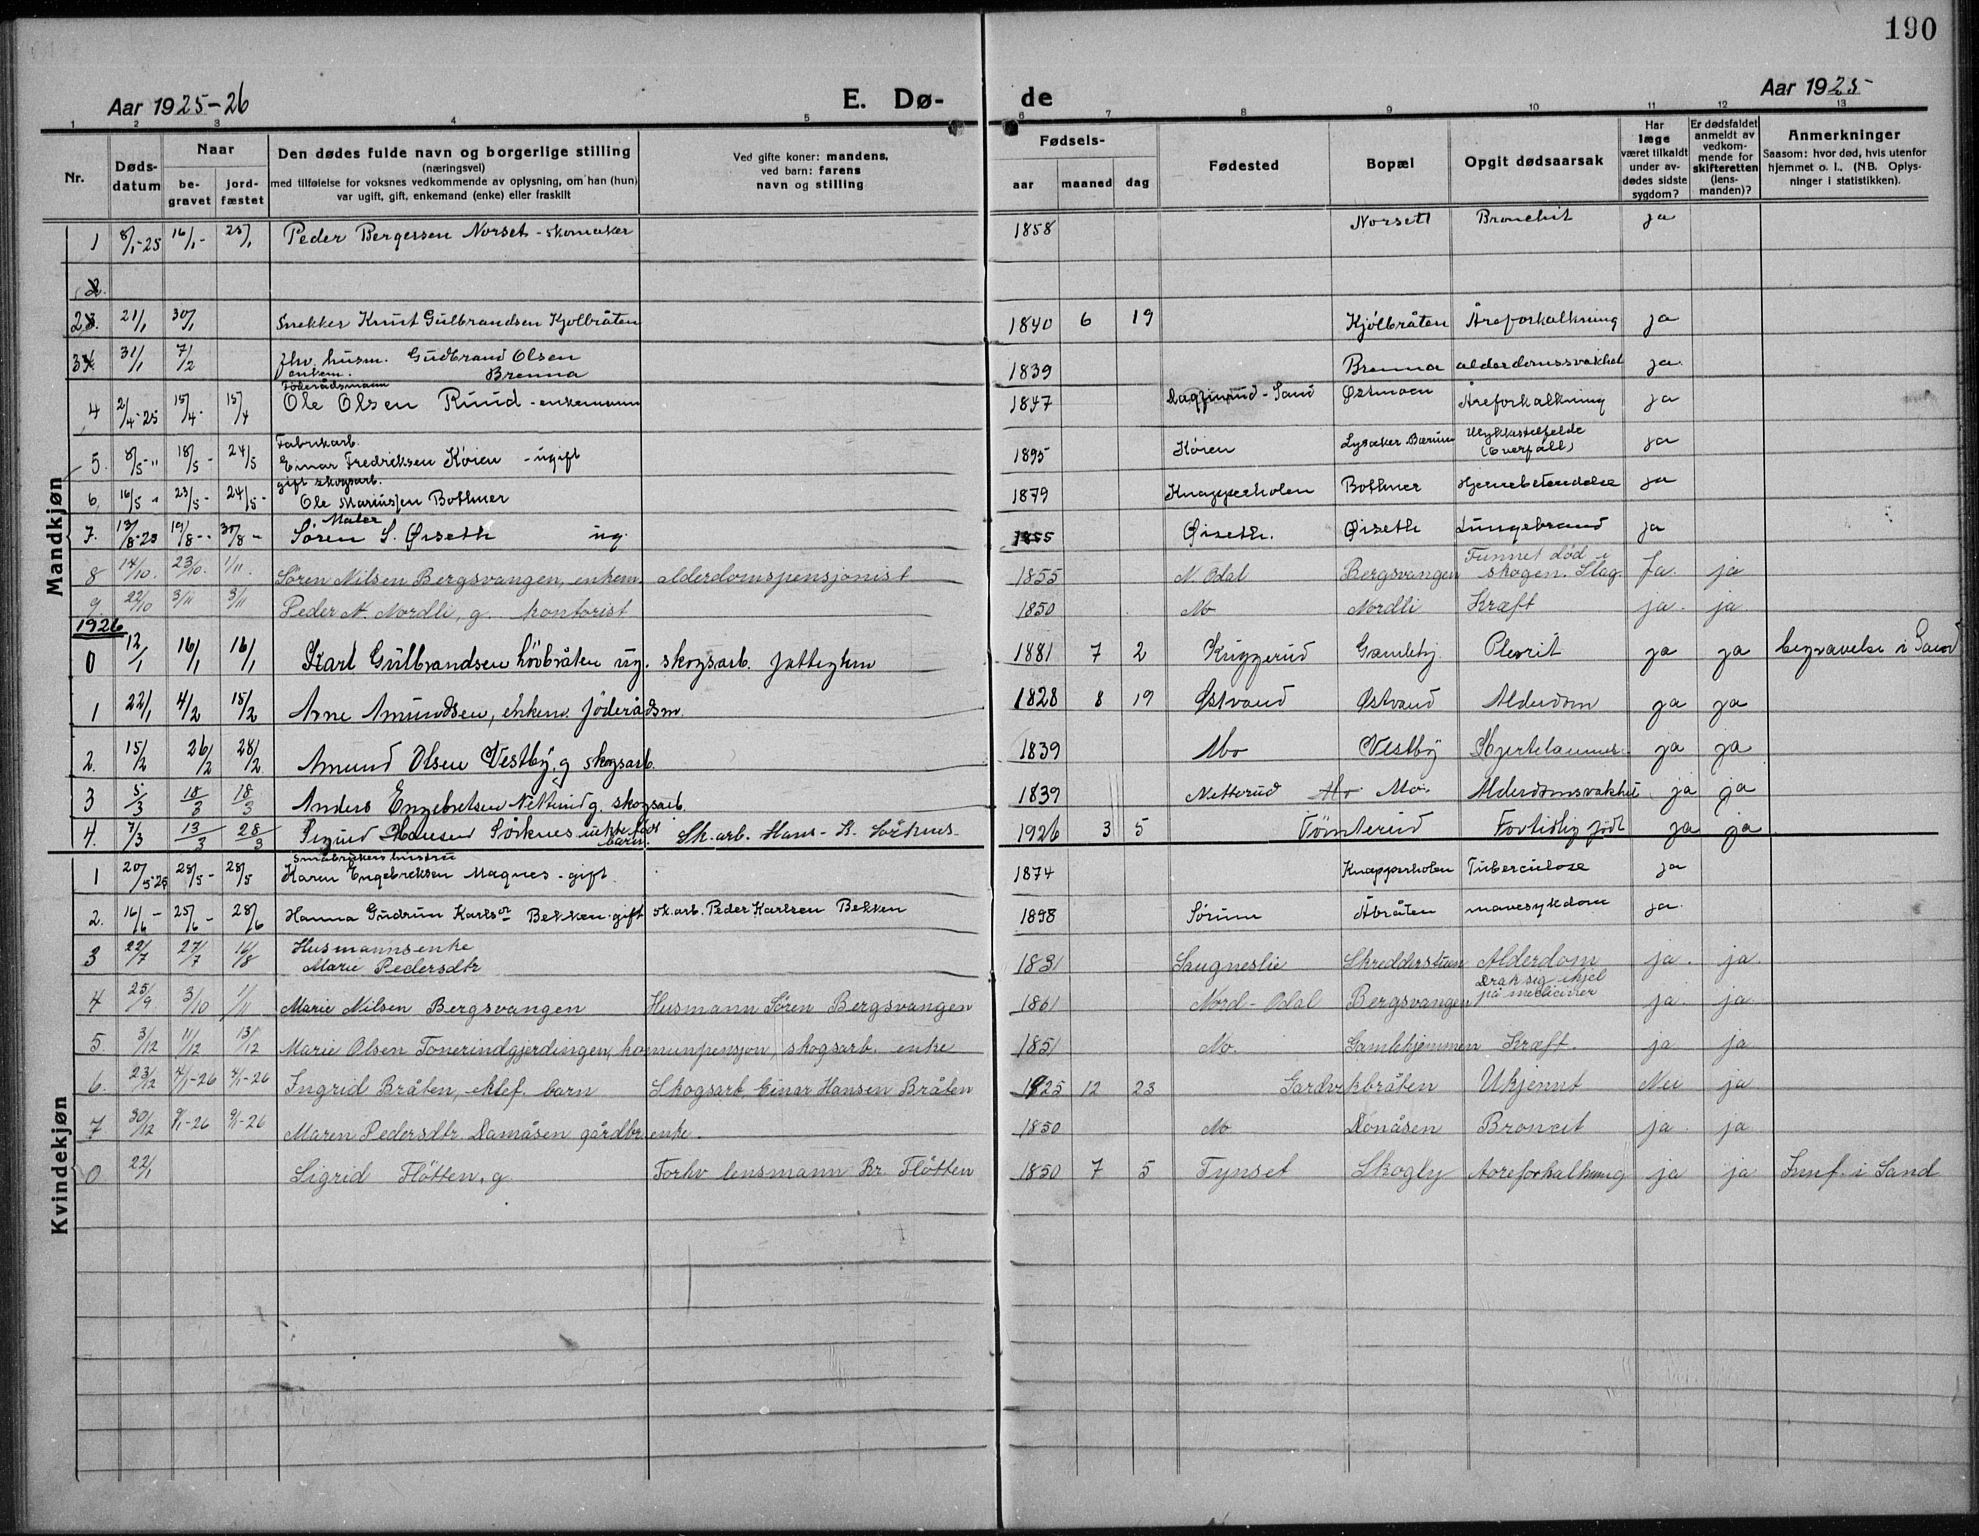 190
Aar 1925-26 E. Dø- de Aar 1925
1 2 3 4 5 6 7 8 9 10 11 12 13
Nr. Døds-datum Naar be-gravet jord-fæstet Den dødes fulde navn og borgerlige stilling (næringsvei) med tilføielse for voksnes vedkommende av oplysning, om han (hun) var ugift, gift, enkemand (enke) eller fraskilt Ved gifte koner: mandens, ved barn: farens navn og stilling Fødsels- aar maaned dag Fødested Bopæl Opgit dødsaarsak Har læge været tilkaldt under av-dødes sidste sygdom? Er dødsfaldet anmeldt av vedkom-mende for skifteretten (lens-manden)? Anmerkninger Saasom: hvor død, hvis utenfor hjemmet o. l., (NB. Oplys-ninger i statistikken).
Mandkjøn
1 8/1-25 16/1- 25/1 Peder Bergersen Norset - skomaker 1858 Norsett Bronchit ja
2.
2 21/1 30/1 Snekker Knut Gulbrandsen Kjølbråten 1840 6 19 Kjølbråten Åreforkalkning ja
3 31/1 7/2 fhv. husm. Gudbrand Olsen enkem. Brenna 1839 Brenna alderdomssvakhet ja.
4 2/4-25 15/4- 15/4 Føderådsmann Ole Olsen Ruud - enkemann 1847 Dagfinrud - Sand Østmoen Åreforkalkning ja
5. 8/5-" 18/5- 24/5 Fabrikarb. Einar Fredriksen Køien - ugift 1895 Køien Lysaker Bærum Ulykkestilfelde (Overfall) ja
6. 16/5-" 23/5- 24/5- gift skogsarb. Ole Mariussen Bottmer 1879 Knapperholen Bottmer Hjernebetendelse ja
7. 13/8-25 19/8-- 30/8- Maler Søren S. Øiseth ug. 1855 Øiseth. Øiseth Lungebrand ja
8 14/10. 23/10. 1/11. Søren Nilsen Bergsvangen, enkem alderdomspensjonist 1855 N. Odal Bergsvangen Funnet død i skogen. Slag. Ja. ja
9. 22/10 3/11 3/11 Peder N. Nordli, g. kontorist 1850 Mo Nordli Kræft ja. ja.
1926
0 12/1 16/1 16/1 Karl Gulbrandsen Løvbråten ug. skogsarb. fattiglem 1881 7 2 Kuggerud Gamlehj. Plevrit ja ja begravelse i Sand
1 22/1 4/2 15/2 Arne Amundsen, enkem. føderådsm. 1828 8 19 Østvand Østvand Alderdom ja ja
2. 15/2 26/2 28/2 Amund Olsen Vestby, g skogsarb. 1839 Mo Vestby Hjertelammelse ja ja
3 5/3 18/3 18/3 Anders Engebretsen Netterud g. skogsarb. 1839 Netterud Mo. Alderdomsvakhet ja ja
4. 7/3 13/3 28/3 Sigurd Hansen Sörknes uekte født barn. Sk.arb. Hans K. Sörknes 1926 3 5 Tömterud Fortidlig födt ja ja
Kvindekjøn
1 20/5-25 28/5- 28/5 Småbrukers hustru Karen Engebretsen Magnes - gift. 1874 Knapperholen Tuberculose ja
2. 16/6- 25/6- 28/6 Hanna Gudrun Karlsen Bekken - gift sk.arb. Peder Karlsen Bekken 1898 Sørum Åbråten mavesykdom ja.
3 22/7 27/7 16/8 Husmannsenke Marie Pedersdtr 1831 Saugneslie Skredderstuen Alderdom ja. ja
4 25/9. 3/10 1/11 Marie Nilsen Bergsvangen Husmann Søren Bergsvangen 1861 Nord-Odal Bergsvangen Drak sig ihjel på medicin ja. ja
5. 3/12 11/12 13/12 Marie Olsen Tonerindgjerdingen, komunpensjon, skogsarb. enke 1851 Mo. Gamlehjemmen Kræft. ja ja
6. 23/12 4/1-26 4/1-26 Ingrid Bråten, ektef. barn Skogsarb. Einar Hansen Bråten 1925 12 23 Gardvikbråten Ukjennt Nei ja
7 30/12 9/1-26 9/1-26 Maren Pedersdtr. Damåsen gårdbr. enke. 1850 Mo Donåsen Broncit ja. ja
0 22/1 Sigrid Fløtten, g Forhv lensmann Br. Fløtten 1850 7 5 Tynset Skogly Aareforkalkning ja ja Jnnf. i Sand